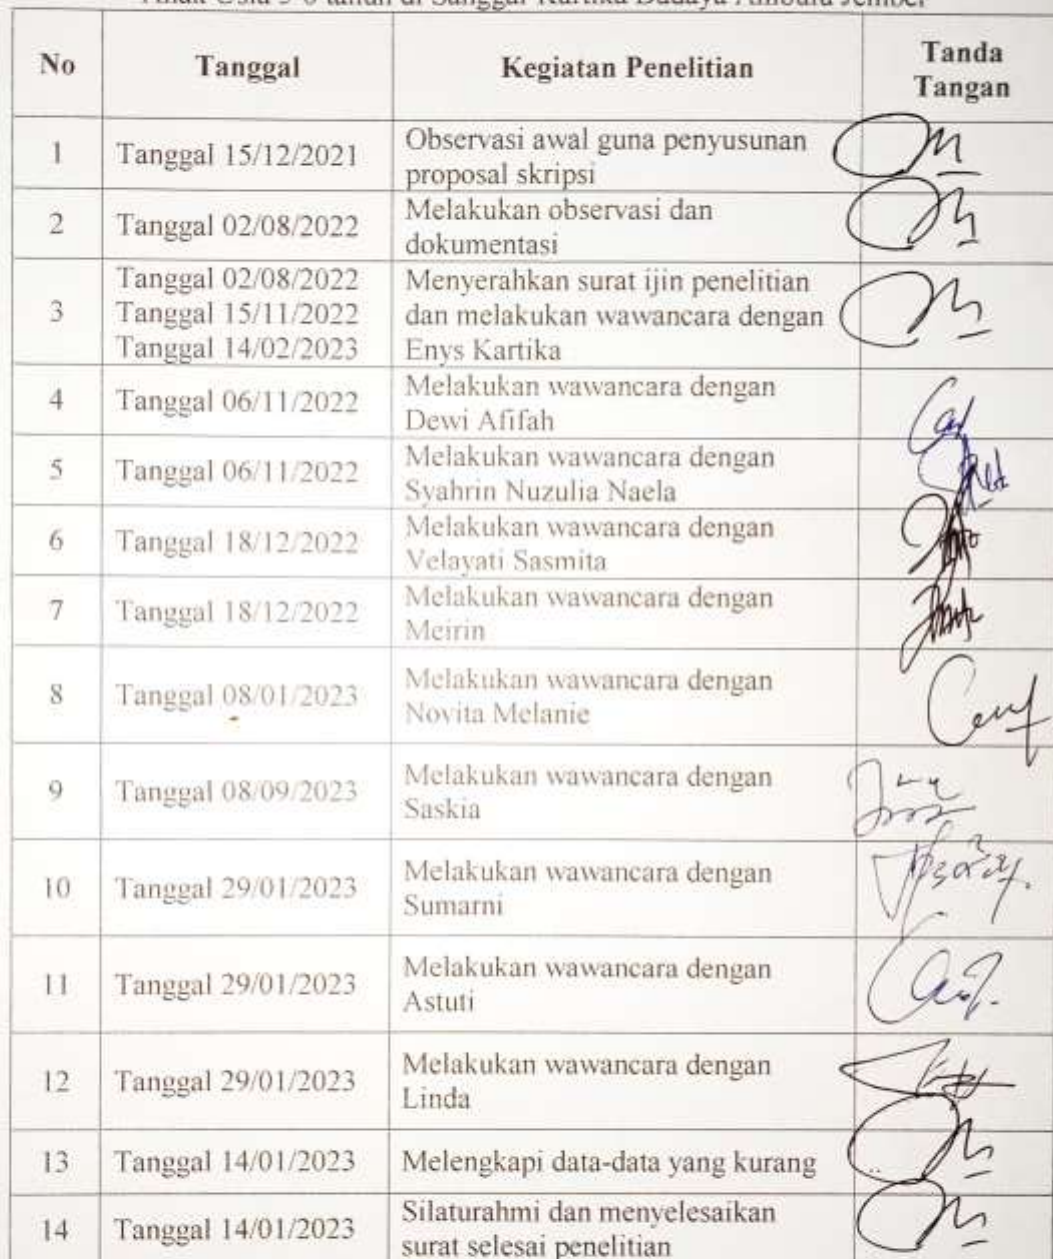 Anak Usia 5-6 tahun di Sanggar Kartika Budaya Ambulu Jember
No Tanggal Kegiatan Penelitian Tanda Tangan
1 Tanggal 15/12/2021 Observasi awal guna penyusunan
proposal skripsi
2 Tanggal 02/08/2022 Melakukan observasi dan
dokumentasi
3 Tanggal 02/08/2022 Menyerahkan surat ijin penelitian
Tanggal 15/11/2022 dan melakukan wawancara dengan
Tanggal 14/02/2023 Enys Kartika
4 Tanggal 06/11/2022 Melakukan wawancara dengan
Dewi Afifah
5 Tanggal 06/11/2022 Melakukan wawancara dengan
Syahrin Nuzulia Naela
6 Tanggal 18/12/2022 Melakukan wawancara dengan
Velayati Sasmita
7 Tanggal 18/12/2022 Melakukan wawancara dengan
Meirin
8 Tanggal 08/01/2023 Melakukan wawancara dengan
Novita Melanie
9 Tanggal 08/09/2023 Melakukan wawancara dengan
Saskia
10 Tanggal 29/01/2023 Melakukan wawancara dengan
Sumarni
11 Tanggal 29/01/2023 Melakukan wawancara dengan
Astuti
12 Tanggal 29/01/2023 Melakukan wawancara dengan
Linda
13 Tanggal 14/01/2023 Melengkapi data-data yang kurang
14 Tanggal 14/01/2023 Silaturahmi dan menyelesaikan
surat selesai penelitian